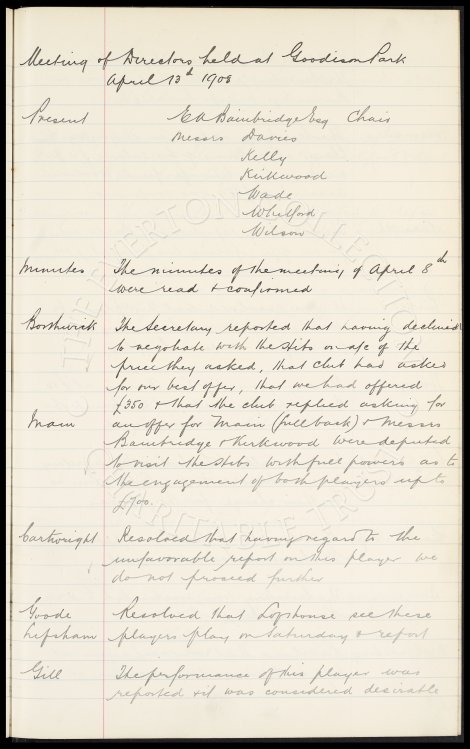 Meeting of Directors held at Goodison Park
April 13th 1908
Present E A Bainbridge Esq Chair
Messrs Davies
Kelly
Kirkwood
Wade
Whitford
Wilson
Minutes The minutes of the meeting of April 8th
were read & confirmed
Borthwick The Secretary reported that having declined
to negotiate with the Hibs on a/c of the
price they asked, that club had asked
for our best offer, that we had offered
£350 & that the club replied asking for
Main an offer for Main (full back) & Messrs
Bainbridge & Kirkwood were deputed
to visit the Hibs with full powers as to
the engagement of both players up to
£700.
Cartwright Resolved that having regard to the
unfavorable report on this player we
do not proceed further
Goode Resolved that Lofthouse see these
Lipsham players play on Saturday & report
Gill The performance of this player was
reported & it was considered desirable
THE EVERTON COLLECTION
CHARITABLE TRUST